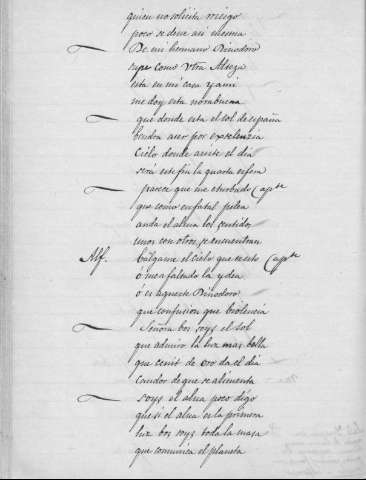 quien no solicita riesgo
poco se deve asi mesma
De un hermano Dinodoro
supe como Vtra Alteza
esta en mi casa y ami
me doy esta norabuena
que donde esta el sol de españa
bendra aser por exselencia
Cielo donde asiste el dia
será este fin la quarta esfera
parece que me eturbado Apte
que como enfatal pelea
anda el alma los sentidos
unos con otros se encuentran
Alf. balgame el cielo que es esto Apte
ó me a faltado la ydea
ó es aqueste Dinodoro
que confusion que biolencia
Señora bos soys el sol
que admiro la luz mas bella
que cenit de oro da el dia
candor de que se alimenta
soys el alua poco digo
que si el alua es la primera
luz bos soys toda la masa
que comunica el planeta